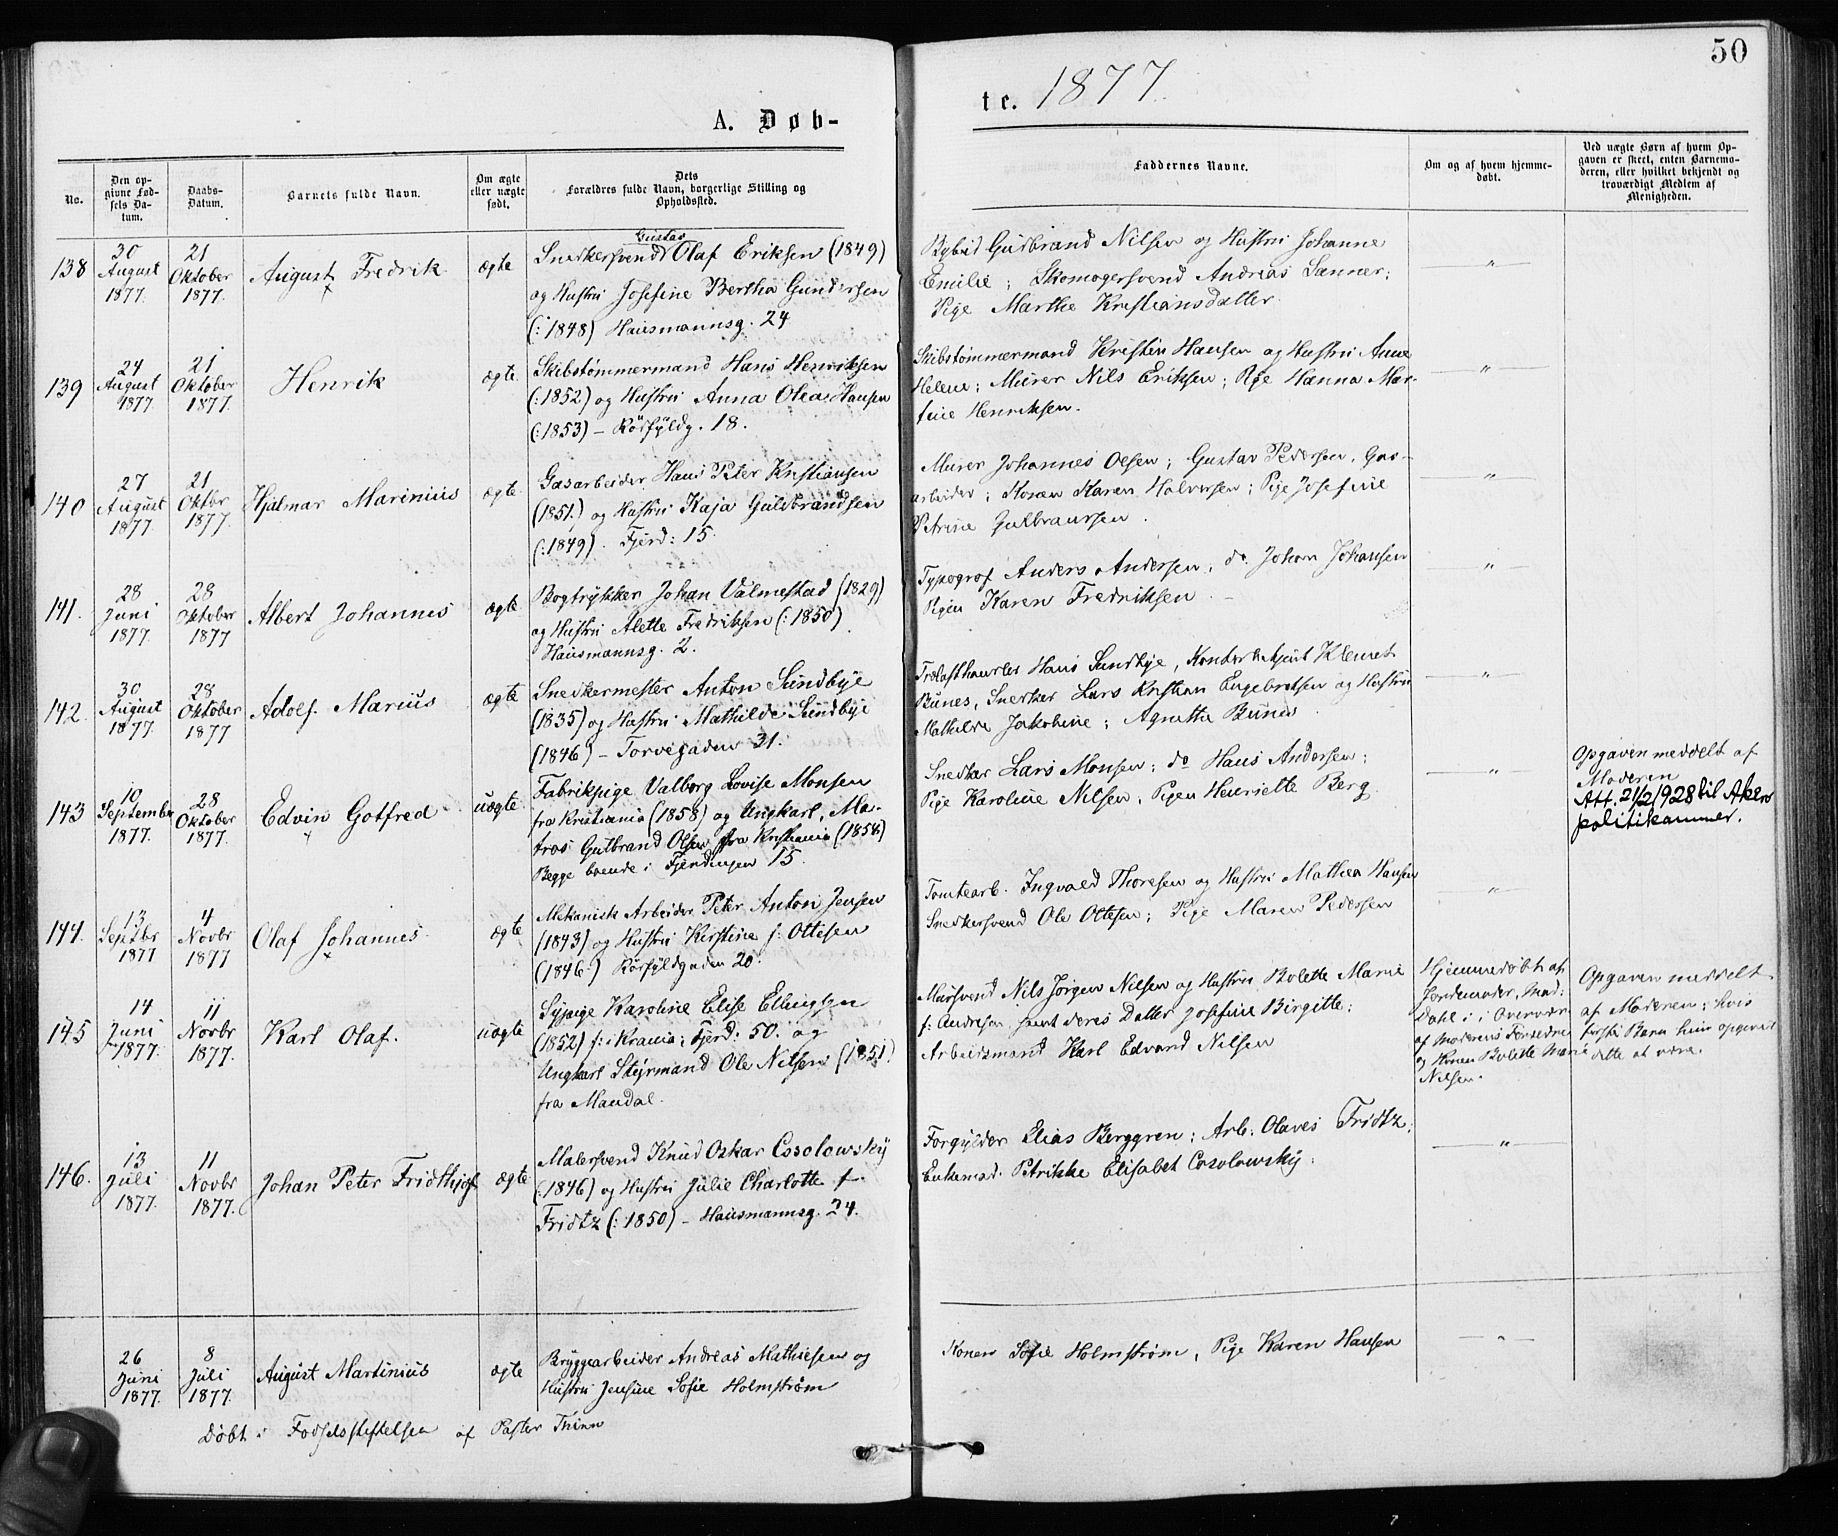 50
A. Døb-
te. 1877.
No.
Den op-
givne Fød-
sels Da-
tum.
Daabs-
Datum.
Barnets fulde Navn.
Om ægte
eller uægte
født.
Dets
Forældres fulde Navn, borgerlige Stilling og
Opholdssted.
Faddernes Navne.
Om og af hvem hjemme-
døbt.
Ved uægte Børn af hvem Op-
gaven er skeet, enten Barnemo-
deren, eller hvilket bekjendt og
troværdigt Medlem af
Menigheden.
138
30
August
1877.
21
Oktober
1877.
August Fredrik
ægte
Gustav
Snedkersvend Olaf Eriksen (1849)
og Hustru Josefine Bertha Gundersen
(:1848) Hausmannsg. 24
Gudbrand Nilsen og Hustru Johanne
Emilie; Skomagersvend Andreas Sanner;
Pige Marthe Kristiansdatter
"
139
24
August
1877.
21
Oktober
1877.
Henrik
ægte
Skibstømmermand Hans Henriksen
(:1852) og Hustru Anna Olea Hansen
(:1853) – Rørfyldg. 18.
Skibstømmermand Kristen Hansen og Hustru Anne
Helene; Murer Nils Eriksen; Pige Hanna Mar-
tine Henriksen.
"
140
27
August
1877.
21
Oktbr
1877.
Hjalmar Marinius
ægte
Gasarbeider Hans Peter Kristiansen
(1851.) og Hustru Kaja Guldbrandsen
(:1849). Fjerd: 15.
Murer Johannes Olsen; Gustav Pedersen, Gas-
arbeider; Konen Karen Halversen; Pige Josefine
Petrine Gulbransen.
"
141.
28
Juni
1877
28
Oktober
1877
Albert Johannes
ægte
Bogtrykker Johan Valmestad (1829)
og Hustru Alette Fredriksen (:1850)
Hausmannsg. 2.
Typograf Anders Andersen; do Johan Johansen
Pigen Karen Fredriksen
"
142.
30
August
1877.
28
Oktober
1877
Adolf Marius
ægte
Snedkermester Anton Sundbye
(1835) og Hustru Mathilde Sundbye
(1846) – Torvegaden 31.
Trælasthandler Hans Sundbye, Kontorbetjent Klemet
Bunes, Snedker Lars Kristian Engebretsen og Hustru
Mathilde Jakobine; Agnethe Bunes
"
143
10
September
1877.
28
Oktober
1877.
Edvin Gotfred
uægte
Fabrikpige Valborg Lovise Monsen
fra Kristiania (1858) og Ungkarl, Ma-
tros Gulbrand Olsen fra Kristiania (1858)
Begge boende i Fjerdingen 15.
Snedker Lars Monsen; do Hans Andersen;
Pige Karoline Nilsen, Pigen Henriette Berg
"
Opgaven meddelt af
Moderen
Att. 21/2 1928 til Aker
politikammer.
144.
13
Septbr
1877
4
Novbr
1877
Olaf Johannes
ægte
Mekanisk Arbeider Peter Anton Jensen
(1843) og Hustru Kirstine f: Ottesen
(1846.) Rørfyldgaden 20.
Tomtearb. Ingvald Thoresen og Hustru Mathea Hansen
Snedkersvend Ole Ottesen; Pige Maren Pedersen
"
145
14
Juni
1877.
11
Novbr
1877.
Karl Olaf.
uægte
Sypige Karoline Elise Ellingsen
(1852) f: i Krania; Fjerd: 50. og
Ungkarl Styrmand Ole Nilsen (1851)
fra Mandal.
Mursvend Nils Jørgen Nilsen og Hustru Bolette Marie
f: Andresen, samt deres Datter Josefine Birgitte;
Arbeidsmand Karl Edvard Nilsen
Hjemmedøbt af
Jordemoder, Mad:
Dahl i Overvær
af Moderens Forældre
og Konen Bolette Marie
Nilsen.
Opgaven meddelt
af Moderen; hvis
første Barn hun opgivet
dette at være.
146.
13
Juli
1877.
11
Novbr
1877.
Johan Peter Fridthjof
ægte
Malersvend Knud Oskar Cosolowsky
(:1846) og Hustru Julie Charlotte f.
Fridtz (:1850) – Hausmannsg. 24.
Forgylder Elias Berggren; Arb: Olaves Fridtz;
Enkemad. Petrikke Elisabet Cosolowsky.
"
26
Juni
1877.
8
Juli
1877.
August Martinius
ægte
Bryggearbeider Andreas Mathiesen og
Hustru Jensine Sofie Holmstrøm
Konen Sofie Holmstrøm, Pige Karen Hansen
"
Døbt i Fødselsstiftelsen af Pastor Thinn